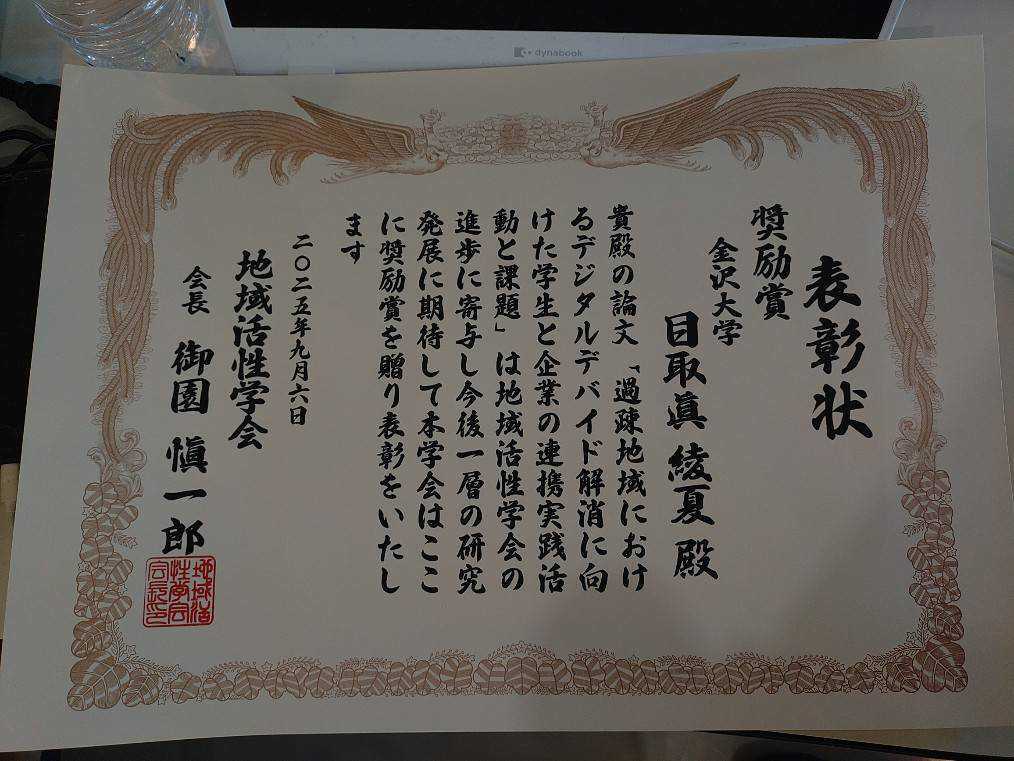 dynabook
表彰状
奨励賞
金沢大学
目取眞 綾夏 殿
貴殿の論文「過疎地域におけ
るデジタルデバイド解消に向
けた学生と企業の連携実践活
動と課題」は地域活性学会の
進歩に寄与し今後一層の研究
発展に期待して本学会はここ
に奨励賞を贈り表彰をいたし
ます
二〇二五年九月六日
地域活性学会
会長 御園 愼一郎
地域活
性学会
会長印